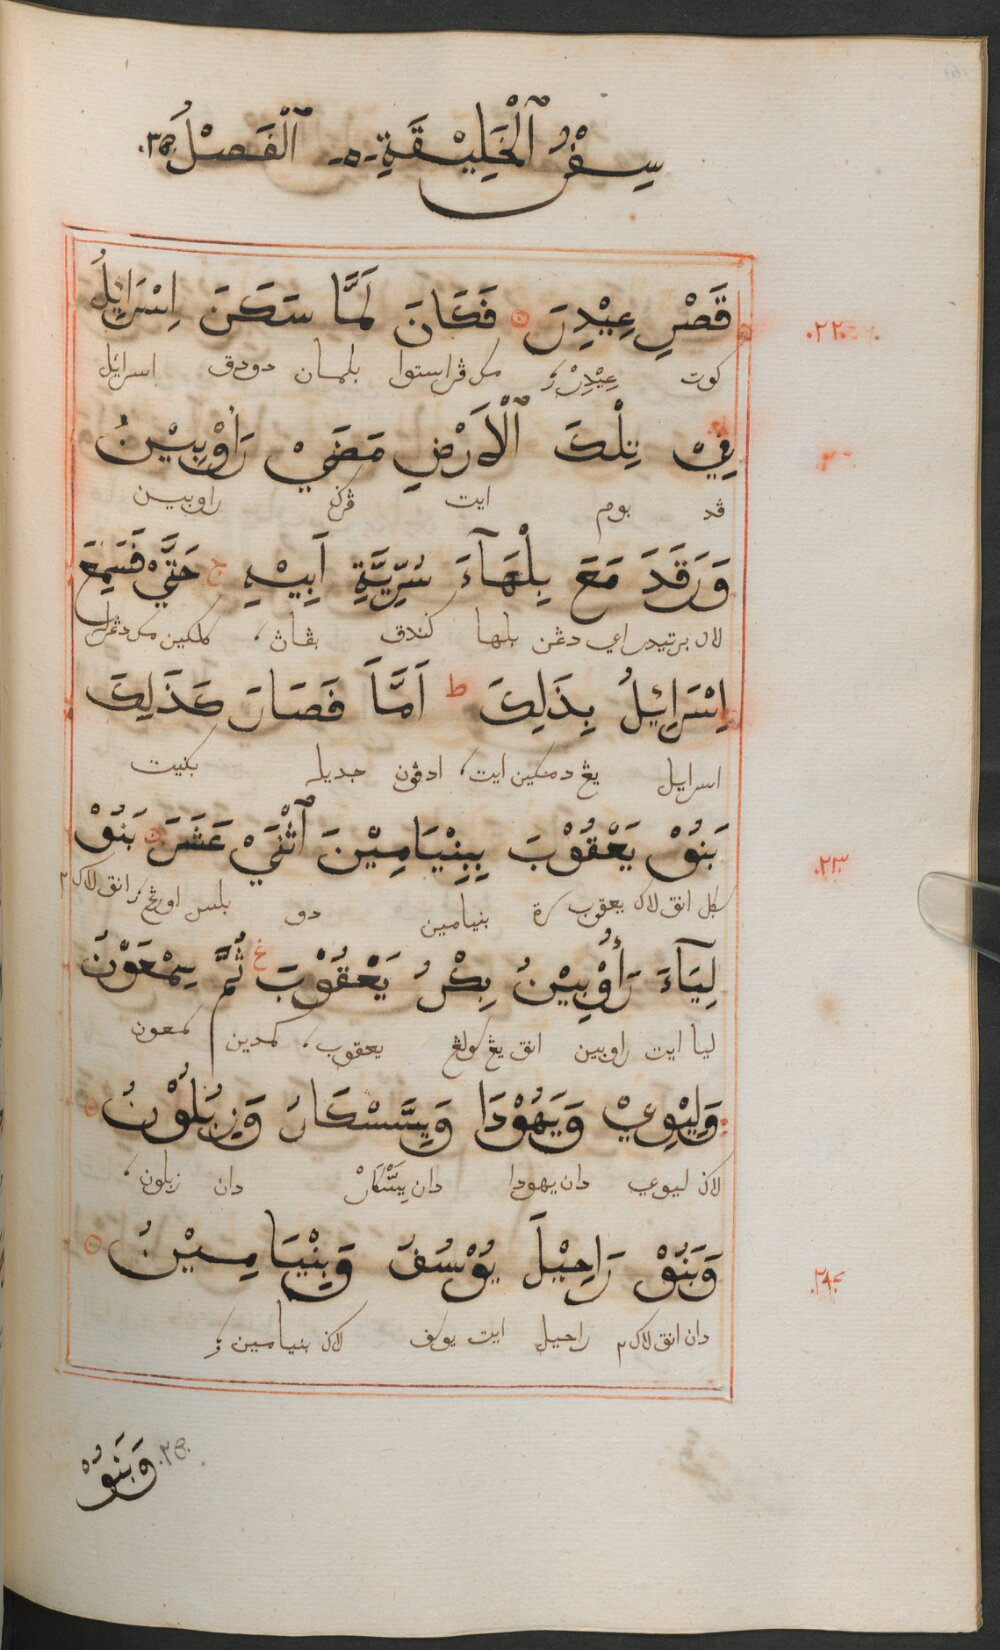 سِفْرُ ٱلْخَلِيْقَةِ -ه- ٱلْفَصْلُ ٣٥.
قَصْرِ عِيْدِرَ فَكَانَ لَمَّا سَكَنَ اِسْرَايِٕلُ
.٢٢.
كوت عِيْدِرْ، مك ڤراستوا بلمان دودق اسرايل
فِيْ تِلْكَ ٱلْاَرْضِ مَضَيْ رَأُوْبِيْنُ
ڤد بوم ايت ڤرݢي راوبين
وَرَقَدَ مَعَ بِلْهَآءَ سُرِّيَّةِ اَبِيْهِ ج حَتَّيْ فَسَمِعَ
لالو برتيدر اي دڠن بلها ݢندق بڤاڽ،
اِسْرَايِٕلُ بِذَلِكَ ط اَمَّا فَصَارَ كَذَلِكَ
اسرايل يڠ دمكين ايت، ادڤون جديله بڬيت
بَنُوْ يَعْقُوْبَ بِبِنْيَامِيْنَ ٱثْنَيْ عَشَرَ بَنُوْ
.٢٣.
سكل انق لاكي يعقوب بنيامين دو بلس اورڠ، انق لاكي ٢
لِيَآءَ رَأُوْبِيْنُ بِكْرُ يَعْقُوْبَ ع ثُمَّ سِمْعَوْنُ
ليا ايت راوبين انق يڠ سولڠ يعقوب، كمدين سمعون
وَلِيْوِيْ وَيَهُوْدَا وَيِسَّسْكَارُ وَزِبُلُوْنُ
لاݢي ليوي دان يهودا دان يِسَّكَارْ دان زبلون،
وَبَنُوْ رَاحِيْلَ يُوْسُفُ وَبِنْيَامِيْنُ
.٢٤.
دان انق لاكي ٢ راحيل ايت يوسف لاݢي بنيامين
وَبَنُوْ .٢٥.